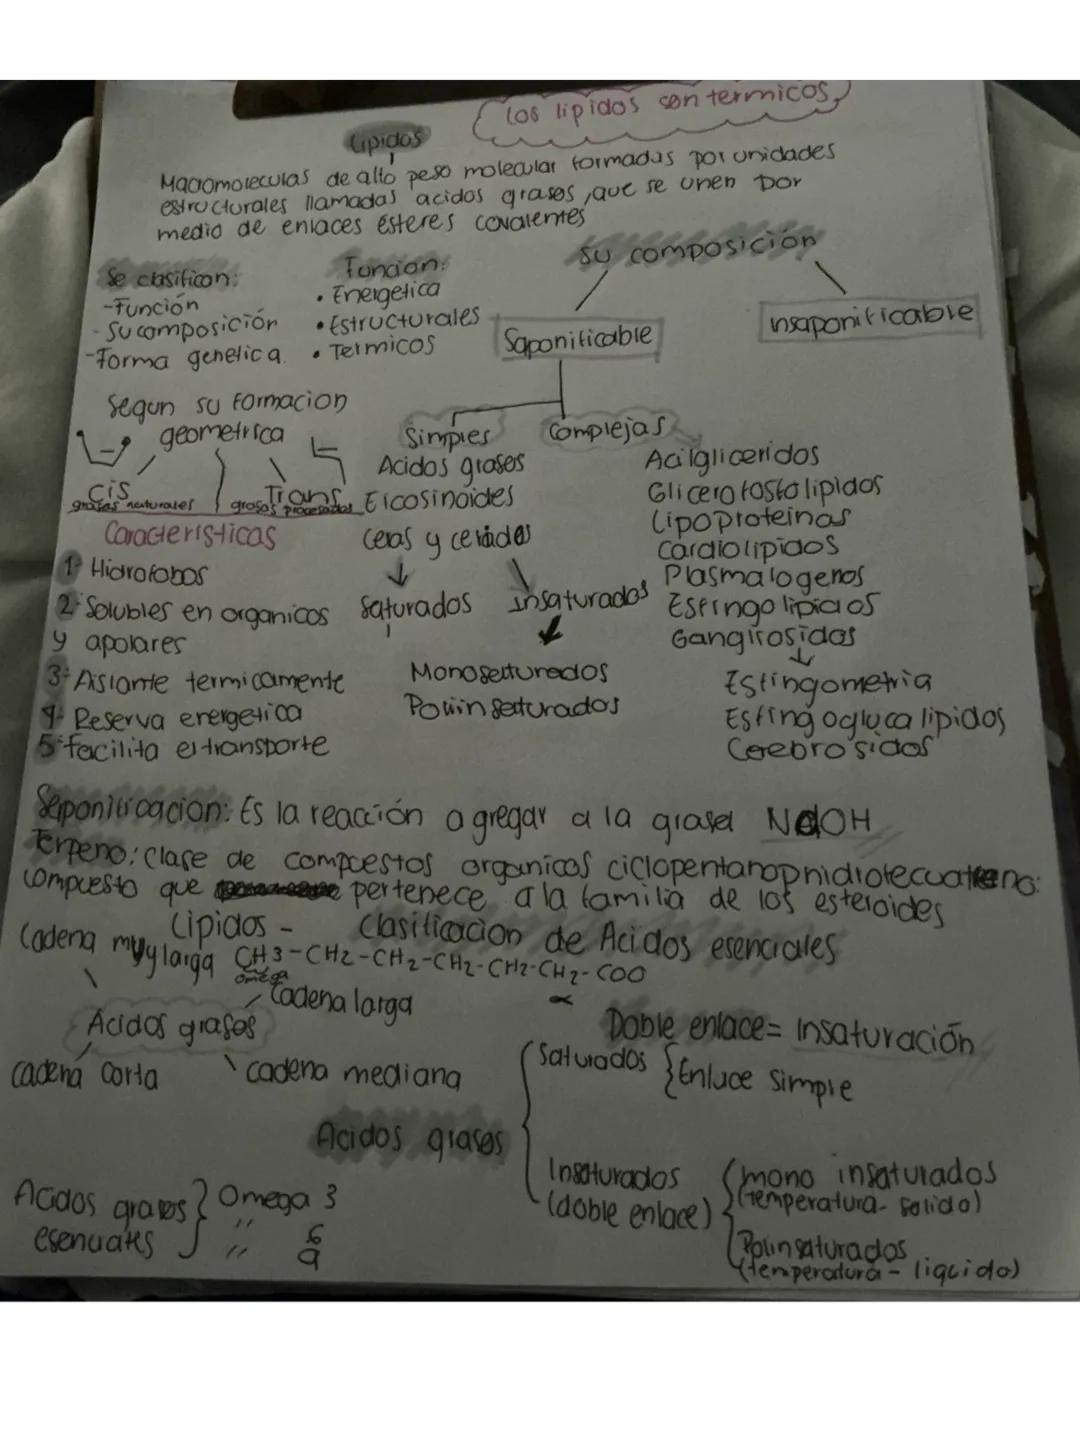 los lipidos son termicos
Lipidos
Macromoleculas de alto peso molecular formadas por unidades
estructurales llamadas acidos grasos, que se unen por
medio de enlaces ésteres covalentes
Su composición
Se clasifican:
-Función
-Su composición
-Forma genetica.
Funcion:
• Energetica
• Estructurales
• Termicos
Saponificable
insaponificable
Segun su formacion
geometrica
Cis
grasas naturales
Trans
grasas procesadas
Simples
Acidos grasos
Eicosinoides
Ceras y ceridos
Saturados
Insaturados
Monosaturados
Poliinsaturados
Complejas
Acilgliceridos
Glicerofosfolipidos
Lipoproteinas
Cardiolipidos
Plasmalogenos
Esfingolipidos
Gangliosidos
Esfingometria
Esfingoglucalipidos
Cerebrosidos
Caracteristicas
1- Hidrofobos
2- Solubles en organicos
y apolares
3- Aislante termicamente
4- Reserva energetica
5- facilita el transporte
Saponificacion: Es la reacción agregar a la grasa NaOH
Terpeno: clase de compuestos organicos
compuesto que pertenece a la familia de los esteroides
Lipidos - Clasificacion de Acidos esenciales
Cadena muy larga CH3-CH2-CH2-CH2-CH2-CH2-COO
omega
α
Cadena larga
Acidos grasos
cadena corta
cadena mediana
Doble enlace= insaturación
Acidos grasos
Saturados { Enlace simple
Insaturados
(doble enlace)
mono insaturados
(temperatura- solido)
Polinsaturados
(temperatura- liquido)
Acidos grasos
esenciales
} Omega 3
" 6
" 9